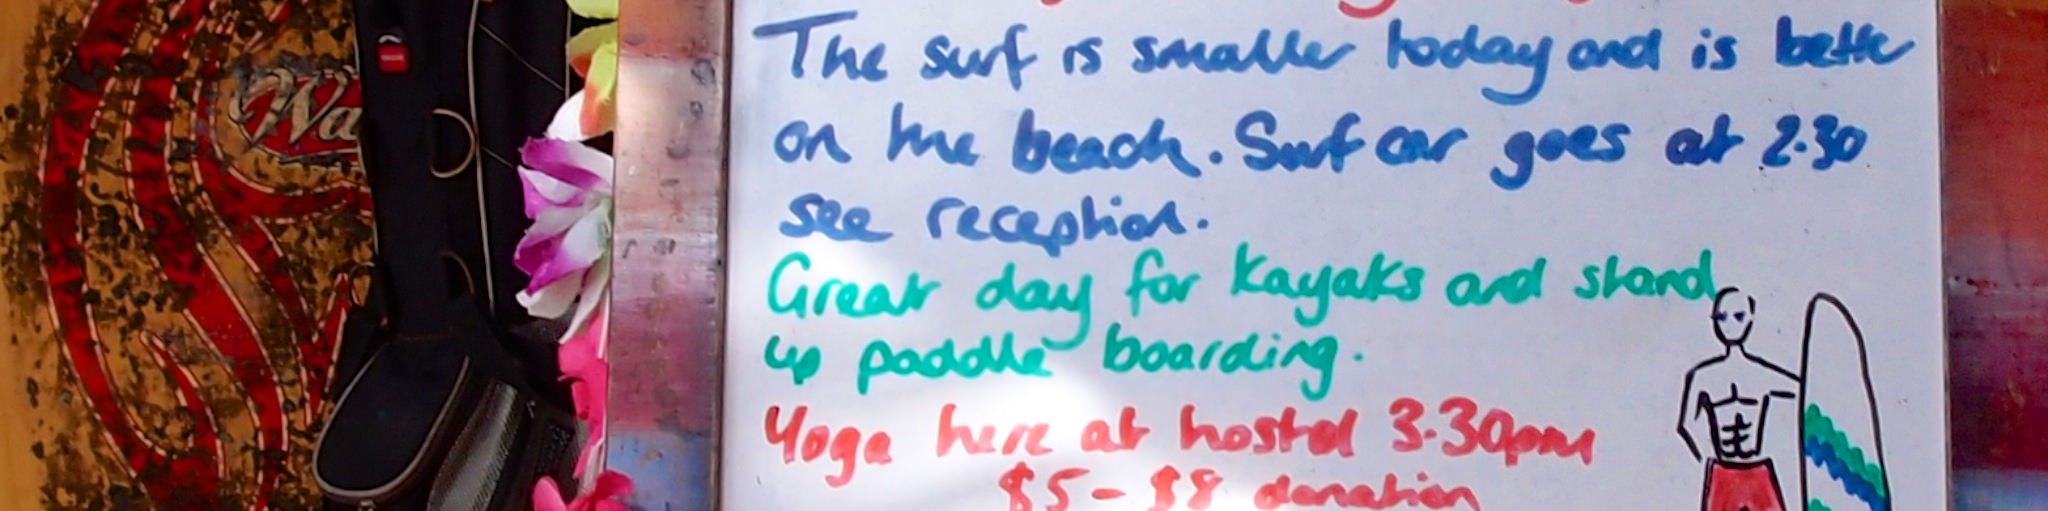 Wa
The surf is smaller today and is better
on the beach. Surf car goes at 2.30
see reception.
Great day for kayaks and stand
up paddle boarding.
Yoga here at hostel 3.30pm
$5 - $8 donation